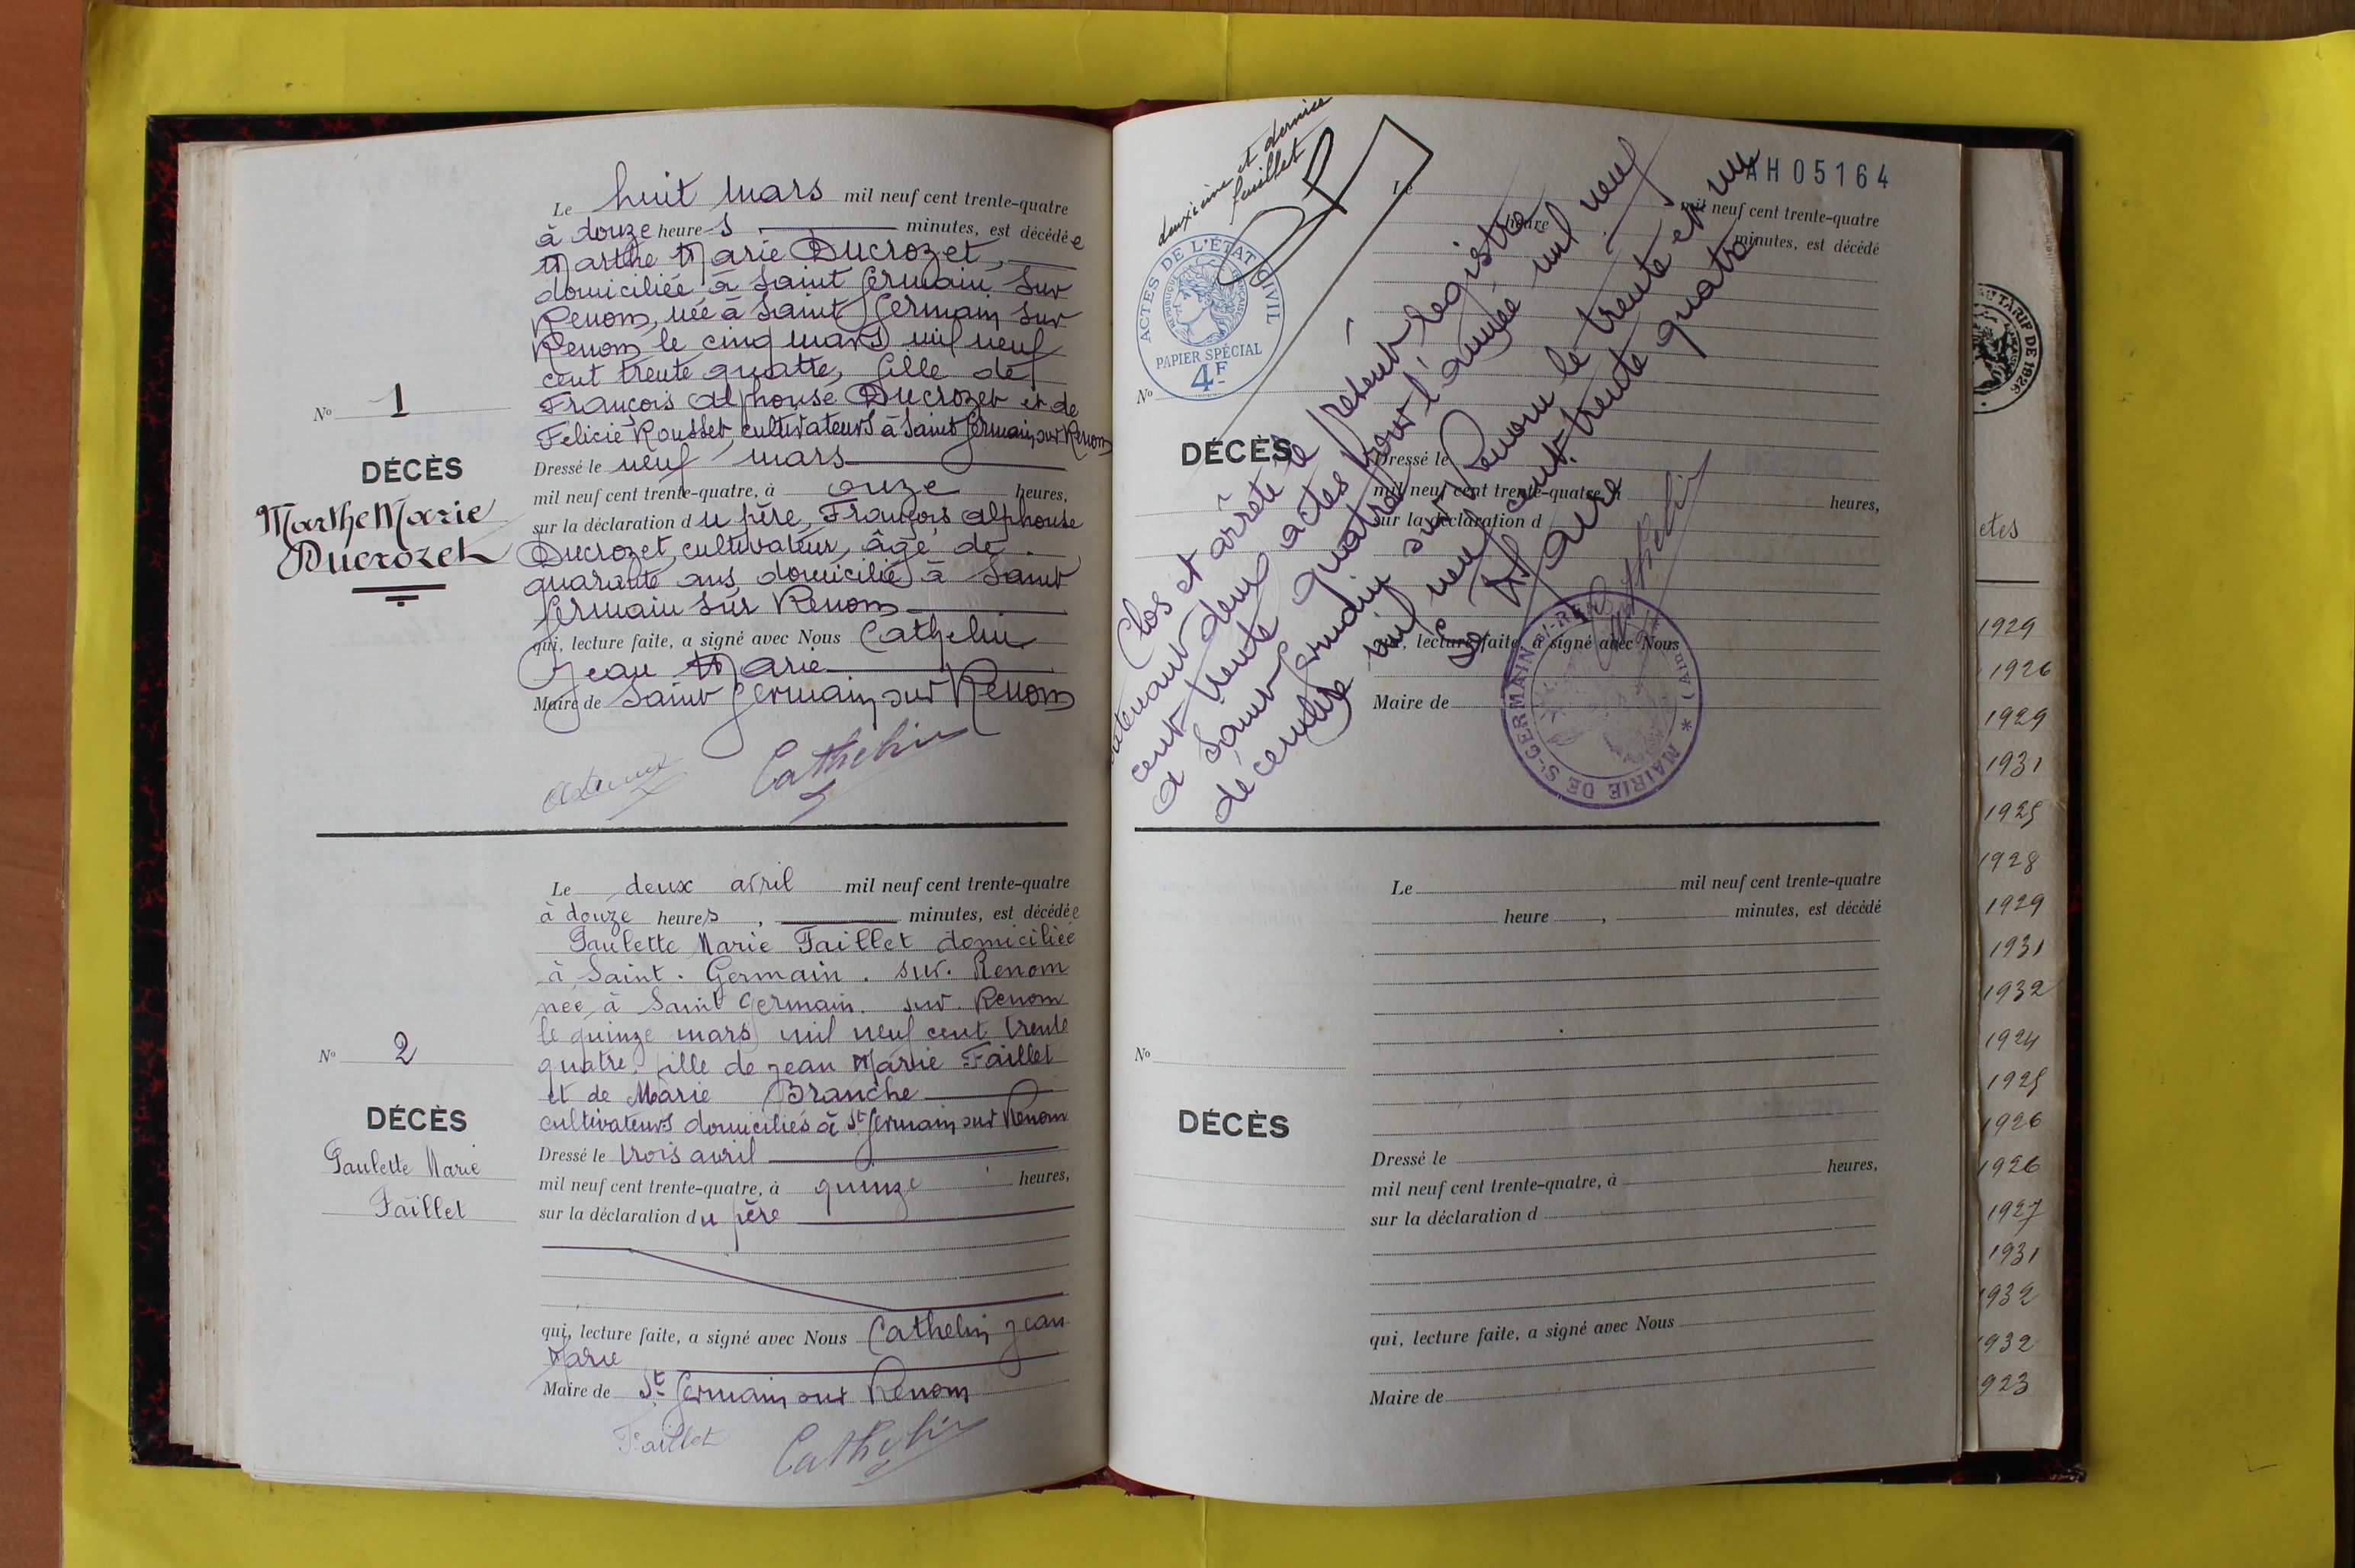 Le huit mars mil neuf cent trente-quatre
à douze heures minutes, est décédée
Marthe Marie Ducrozet,
domiciliée à Saint Germain sur
Renom, née à Saint Germain sur
Renom le cinq mars mil neuf
cent trente quatre, fille de
François Alphonse Ducrozet et de
Felicie Rousset, cultivateurs à Saint Germain sur Renom
Dressé le neuf mars
mil neuf cent trente-quatre, à onze heures,
sur la déclaration du père, François Alphonse
Ducrozet, cultivateur, âgé de
quarante ans, domicilié à Saint
Germain sur Renom
qui, lecture faite, a signé avec Nous Cathelin
Jean Marie
Maire de Saint Germain sur Renom
Cathelin
No 1
DÉCÈS
Marthe Marie
Ducrozet
Le deux avril mil neuf cent trente-quatre
à douze heures, minutes, est décédée
Paulette Marie Faillet domiciliée
à Saint. Germain. sur. Renom
née à Saint Germain. sur. Renom
le quinze mars mil neuf cent trente
quatre, fille de Jean Marie Faillet
et de Marie Branche
cultivateurs domiciliés à St Germain sur Renom
Dressé le trois avril
mil neuf cent trente-quatre, à quinze heures,
sur la déclaration du père
qui, lecture faite, a signé avec Nous Cathelin Jean
Marie
Maire de St Germain sur Renom
Faillet Cathelin
No 2
DÉCÈS
Paulette Marie
Faillet
deuxième et dernier
feuillet
ACTES DE L'ÉTAT CIVIL
RÉPUBLIQUE FRANÇAISE
PAPIER SPÉCIAL
4F
AH05164
Le mil neuf cent trente-quatre
heure minutes, est décédé
No
DÉCÈS
Dressé le
mil neuf cent trente-quatre, à heures,
sur la déclaration d
qui, lecture faite, a signé avec Nous
Maire de
Clos et arrêté le présent registre
contenant deux actes pour l'année mil neuf
cent trente quatre
à Saint Germain sur Renom le trente et un
décembre mil neuf cent trente quatre
Le Maire
Cathelin
MAIRIE DE St-GERMAIN-S/-RENON (Ain)
Le mil neuf cent trente-quatre
heure, minutes, est décédé
No
DÉCÈS
Dressé le
mil neuf cent trente-quatre, à heures,
sur la déclaration d
qui, lecture faite, a signé avec Nous
Maire de
AU TARIF DE 1926
etes
1929
1926
1929
1931
1925
1928
1929
1931
1932
1924
1925
1926
1926
1927
1931
1932
1932
923